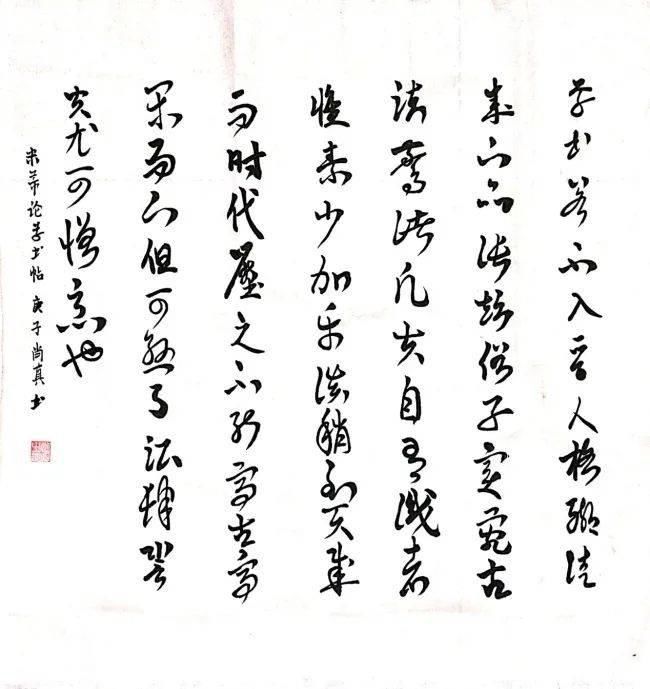 草书若不入晋人格辄徒
成下品张颠俗子变乱古
法惊诸凡夫自有识者
怀素少加平淡稍到天成
而时代压之不能高古高
闲而下但可悬之酒肆辩
光尤可憎恶也
米芾论草书帖 庚子尚真书